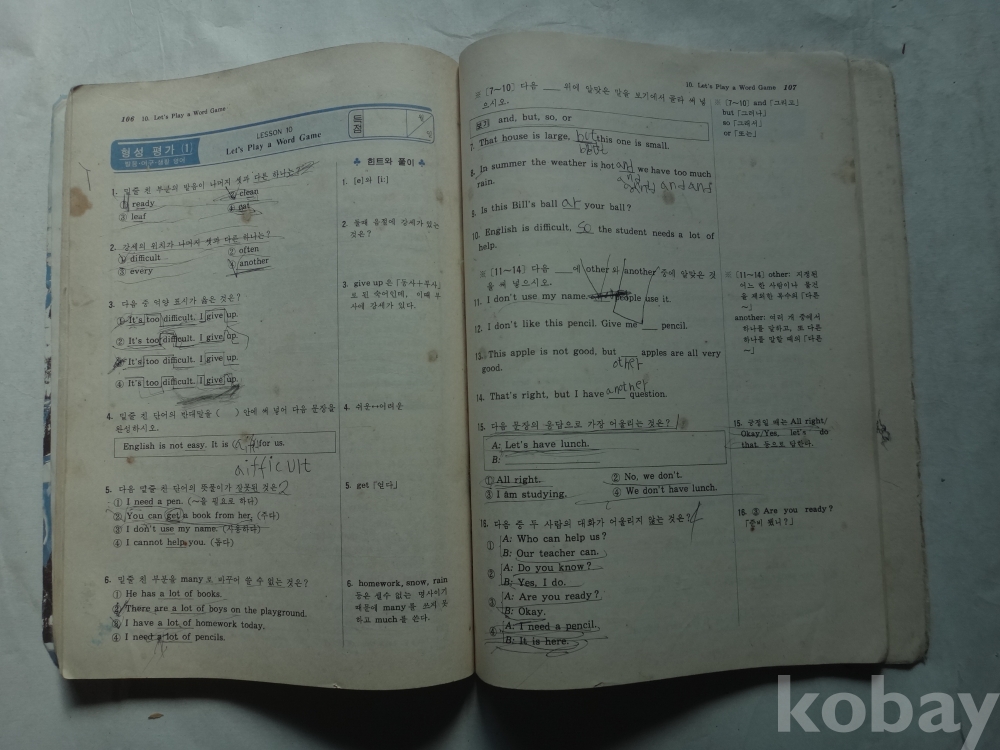 106 10. Let's Play a Word Game
형성 평가 1
LESSON 10
Let's Play a Word Game
득점
월
일
♣ 힌트와 풀이 ♣
1. 밑줄 친 부분의 발음이 나머지 셋과 다른 하나는?
① ready ② clean
③ leaf ④ eat
1. [e]와 [i:]
2. 강세의 위치가 나머지 셋과 다른 하나는?
① difficult ② often
③ every ④ another
2. 둘째 음절에 강세가 있는
것은?
3. 다음 중 억양 표시가 옳은 것은?
① It's too difficult. I give up.
② It's too difficult. I give up.
③ It's too difficult. I give up.
④ It's too difficult. I give up.
3. give up은 「동사+부사」
로 된 숙어인데, 이때 부
사에 강세가 있다.
4. 밑줄 친 단어의 반대말을 ( ) 안에 써 넣어 다음 문장을
완성하시오.
English is not easy. It is ( ) for us.
difficult
4. 쉬운↔어려운
5. 다음 밑줄 친 단어의 뜻풀이가 잘못된 것은? 2
① I need a pen. (~을 필요로 하다)
② You can get a book from her. (주다)
③ I don't use my name. (사용하다)
④ I cannot help you. (돕다)
5. get 「얻다」
6. 밑줄 친 부분을 many로 바꾸어 쓸 수 없는 것은?
① He has a lot of books.
② There are a lot of boys on the playground.
③ I have a lot of homework today.
④ I need a lot of pencils.
6. homework, snow, rain
등은 셀수 없는 명사이기
때문에 many를 쓰지 못
하고 much를 쓴다.
10. Let's Play a Word Game 107
※ [7~10] 다음 ___ 위에 알맞은 말을 보기에서 골라 써 넣
으시오.
보기 and, but, so, or
7. That house is large, but this one is small.
but
8. In summer the weather is hot and we have too much
rain.
and
and and and
9. Is this Bill's ball ar your ball?
10. English is difficult, so the student needs a lot of
help.
※ [7~10] and 「그리고」
but 「그러나」
so 「그래서」
or 「또는」
※ [11~14] 다음 ___에 other와 another 중에 알맞은 것
을 써 넣으시오.
11. I don't use my name. people use it.
12. I don't like this pencil. Give me ___ pencil.
13. This apple is not good, but ___ apples are all very
good.
other
14. That's right, but I have another question.
※ [11~14] other: 지정된
어느 한 사람이나 물건
을 제외한 복수의 「다른
~」
another: 여러 개 중에서
하나를 말하고, 또 다른
하나를 말할 때의 「다른
~」
15. 다음 문장의 응답으로 가장 어울리는 것은? 1
A: Let's have lunch.
B:
① All right. ② No, we don't.
③ I am studying. ④ We don't have lunch.
15. 긍정일 때는 All right/
Okay/Yes, let's do
that 등으로 답한다.
16. 다음 중 두 사람의 대화가 어울리지 않는 것은? 4
① A: Who can help us?
B: Our teacher can.
② A: Do you know?
B: Yes, I do.
③ A: Are you ready?
B: Okay.
④ A: I need a pencil.
B: It is here.
16. ③ Are you ready?
「준비 됐니?」
kobay